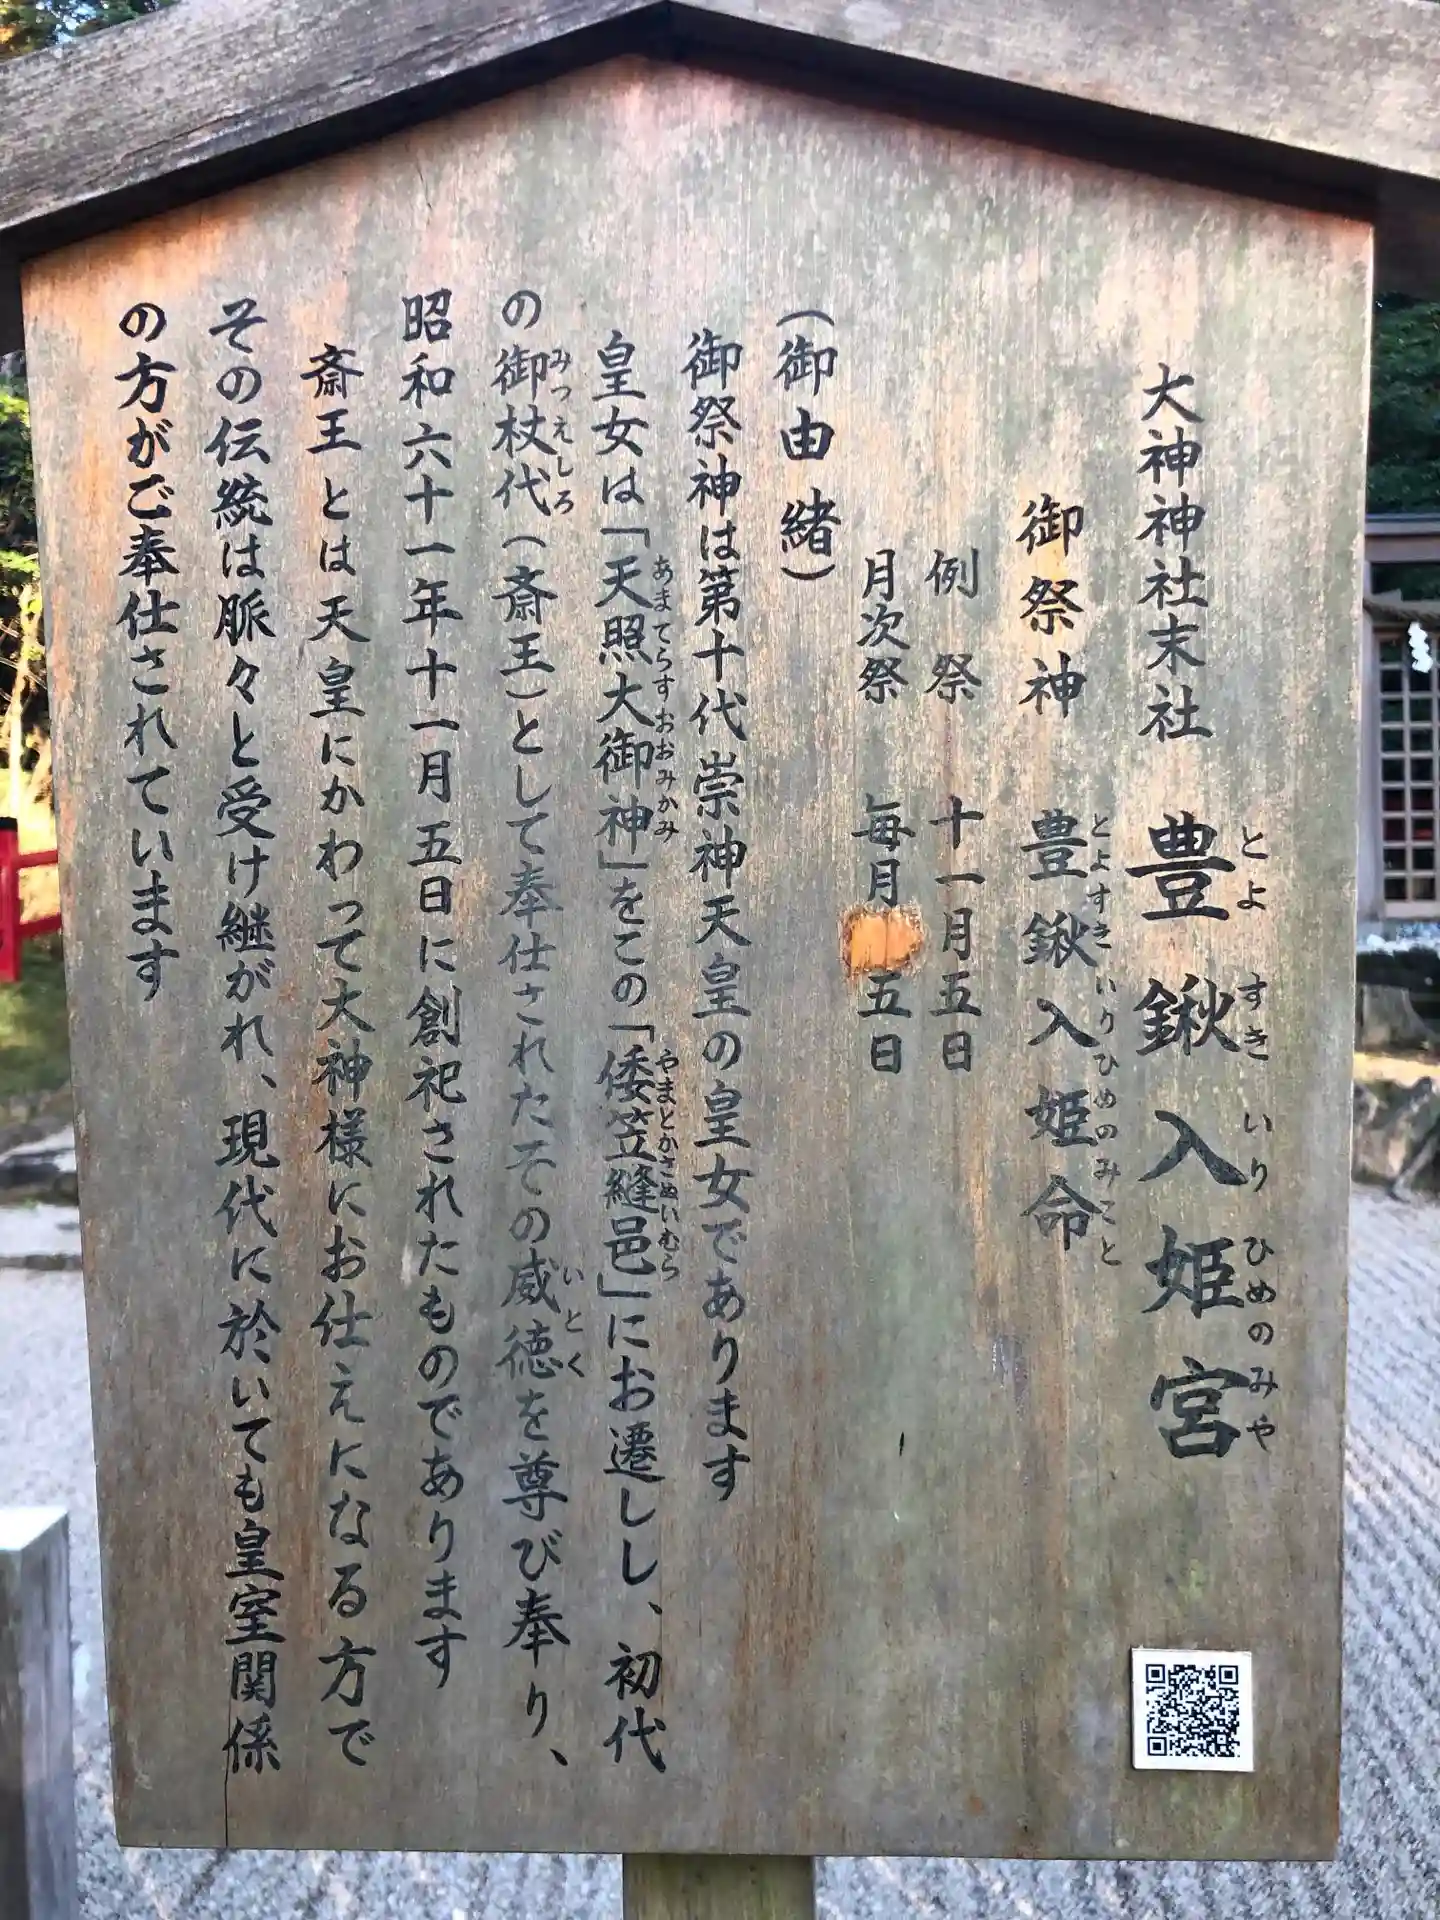 大神神社末社 豊鍬入姫宮
とよすきいりひめのみや
御祭神 豊鍬入姫命
とよすきいりひめのみこと
例祭 十一月五日
月次祭 毎月五日
(御由緒)
御祭神は第十代崇神天皇の皇女であります
皇女は「天照大御神」をこの「倭笠縫邑」にお遷しし、初代
あまてらすおおみかみ やまとかさぬいむら
の御杖代(斎王)として奉仕されたその威徳を尊び奉り、
みつえしろ いとく
昭和六十一年十一月五日に創祀されたものであります
斎王とは天皇にかわって大神様にお仕えになる方で
その伝統は脈々と受け継がれ、現代に於いても皇室関係
の方がご奉仕されています